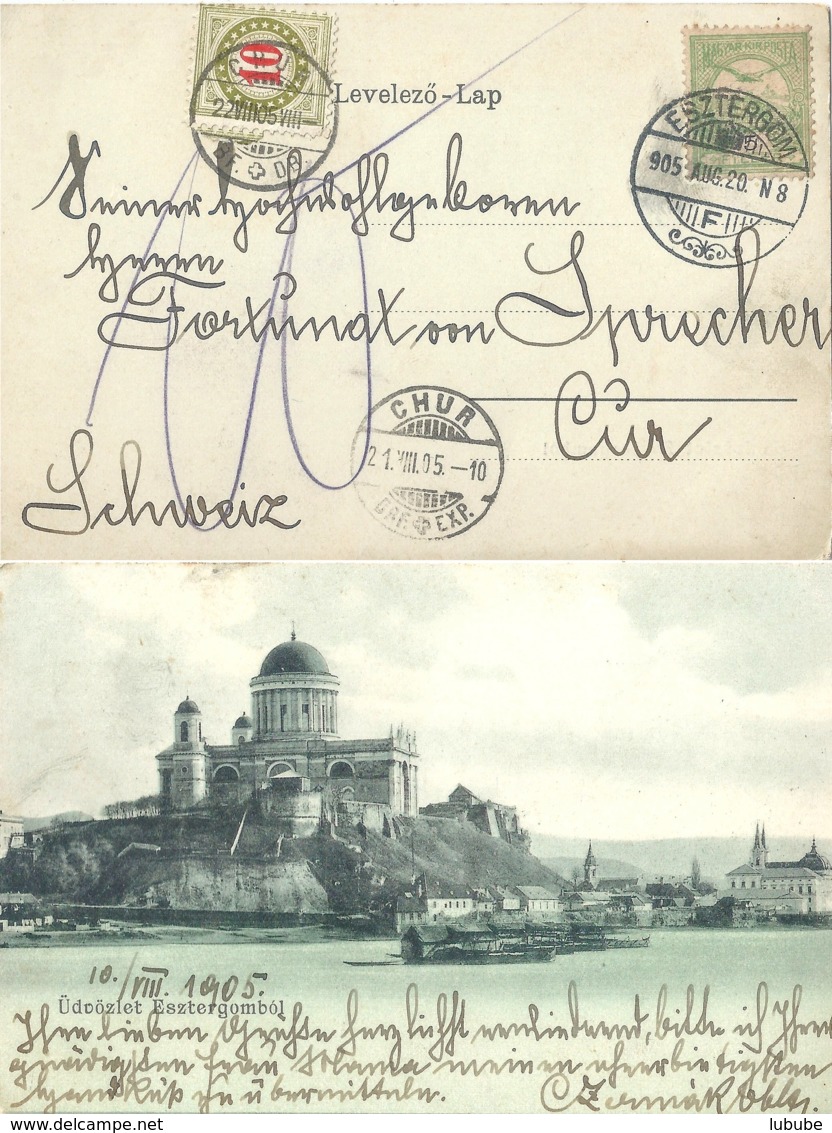 10
CHUR
22 VIII 05 VIII
BF. DG
Levelező-Lap
MAGYAR KIR. POSTA
ESZTERGOM
905 AUG. 20. N 8
F
Seiner Hochwohlgeboren
Herrn
Fortunat von Sprecher
Cur
CHUR
21. VIII. 05. -10
BRF. EXP.
Schweiz
10
10./VIII. 1905.
Üdvözlet Esztergomból
Ihre lieben Grüße herzlichst erwiedernd, bitte ich Ihrer
gnädigsten Frau Mama meinen ehrerbietigsten
Handkuß zu übermitteln.
lubube